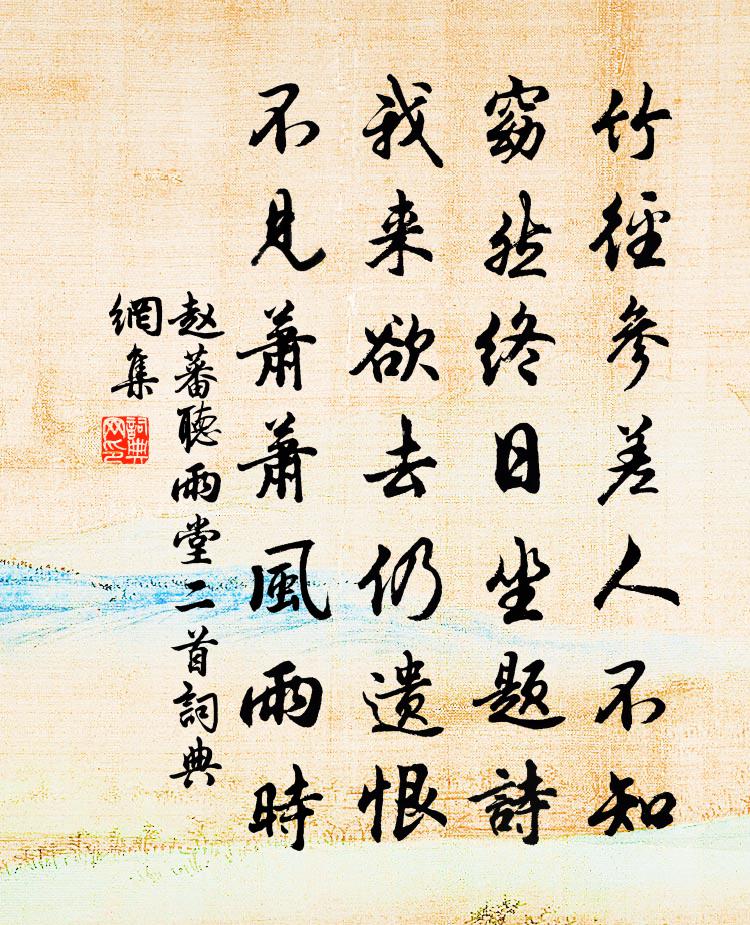 竹徑參差人不知
窈然終日坐題詩
我来欲去仍遺恨
不見蕭蕭風雨時
赵蕃聽雨堂二首詞典
網集
詞典
网印